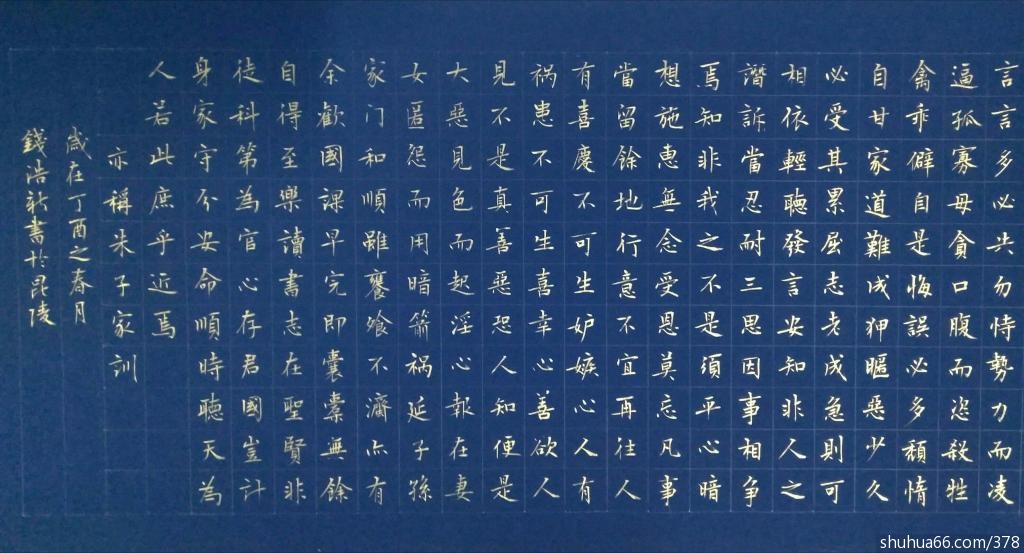 言言多必失勿恃勢力而凌
逼孤寡毋貪口腹而恣殺牲
禽乖僻自是悔誤必多頹惰
自甘家道難成狎暱惡少久
必受其累屈志老成急則可
相依輕聽發言安知非人之
譖訴當忍耐三思因事相爭
焉知非我之不是須平心暗
想施惠無念受恩莫忘凡事
當留餘地行意不宜再往人
有喜慶不可生妒嫉心人有
禍患不可生喜幸心善欲人
見不是真善惡恐人知便是
大惡見色而起淫心報在妻
女匿怨而用暗箭禍延子孫
家门和順雖饔飧不濟亦有
余歡國課早完即囊橐無餘
自得至樂讀書志在聖賢非
徒科第為官心存君國豈計
身家守分安命順時聽天為
人若此庶乎近焉
亦稱朱子家訓
歲在丁酉之春月
錢浩新書於昆陵
shuhua66.com/378